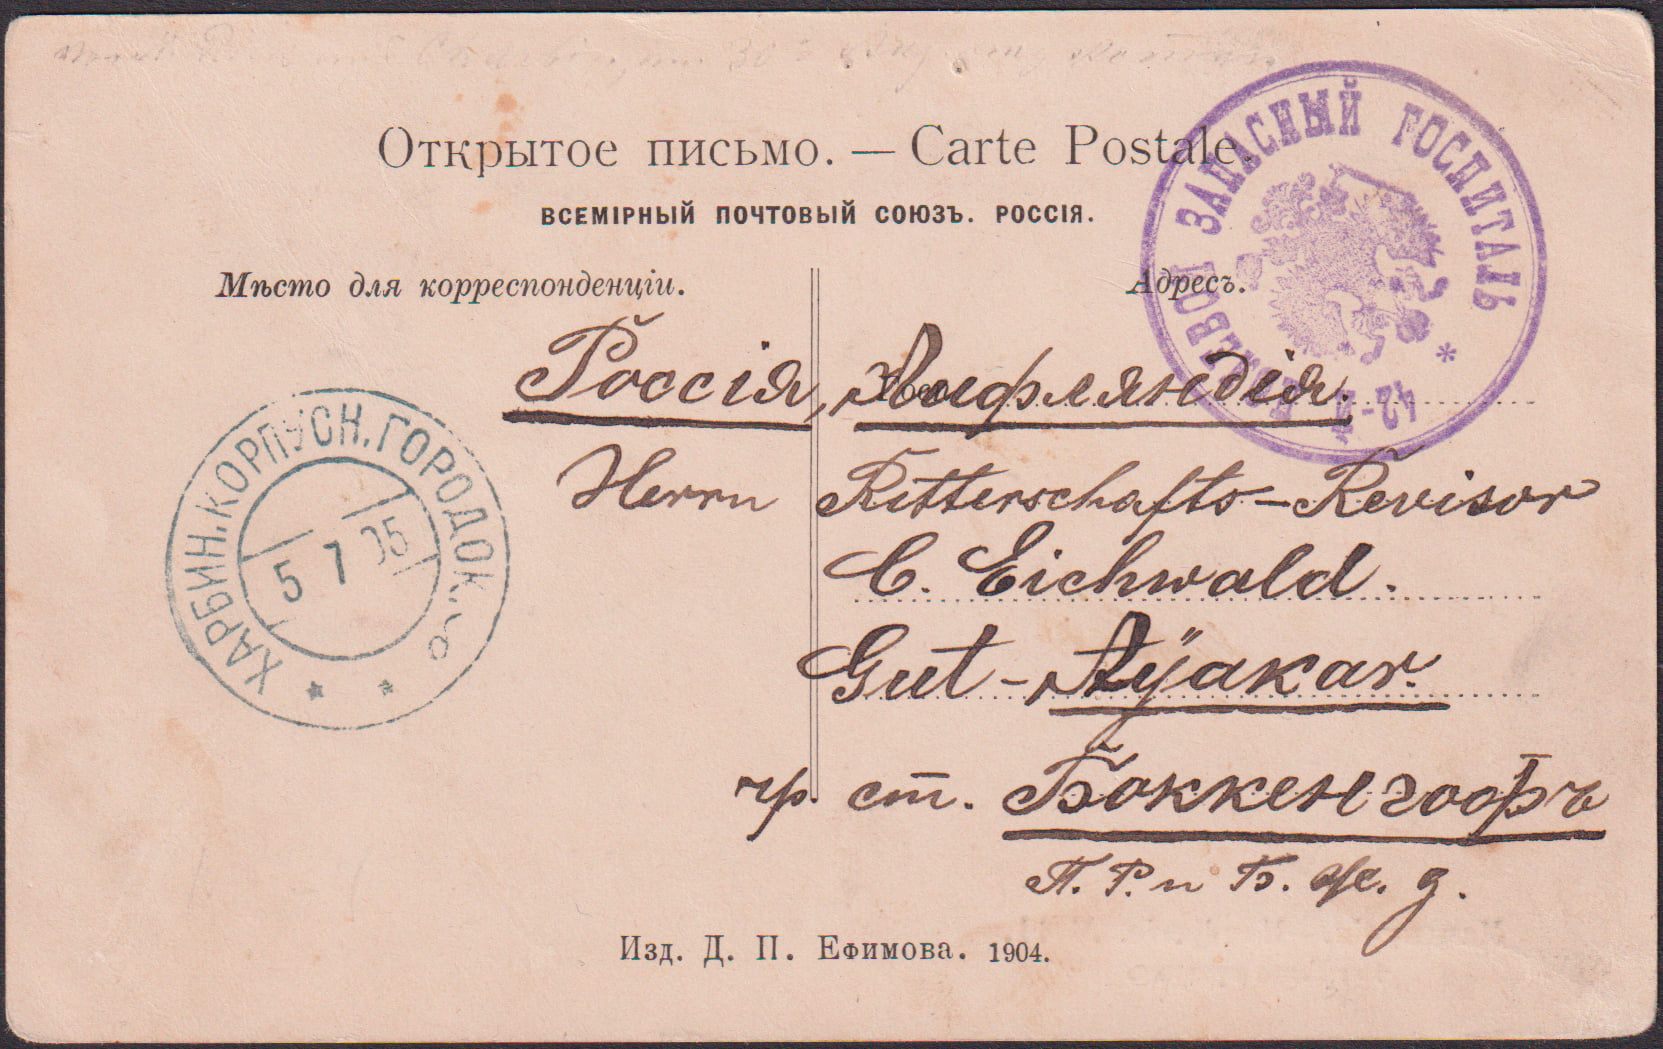 Открытое письмо. — Carte Postale.
ВСЕМІРНЫЙ ПОЧТОВЫЙ СОЮЗЪ. РОССІЯ.
Мѣсто для корреспонденціи.
Адресъ.
42-Й ПОЛЕВОЙ ЗАПАСНЫЙ ГОСПИТАЛЬ *
Россія, Лифляндія.
Herrn Ritterschafts-Revisor
C. Eichwald.
Gut-Аяkar.
чр. ст. Боккенгофъ
П. Р. и Б. ж. д.
ХАРБИН. КОРПУСН. ГОРОДОК.
5 7 05
Изд. Д. П. Ефимова. 1904.